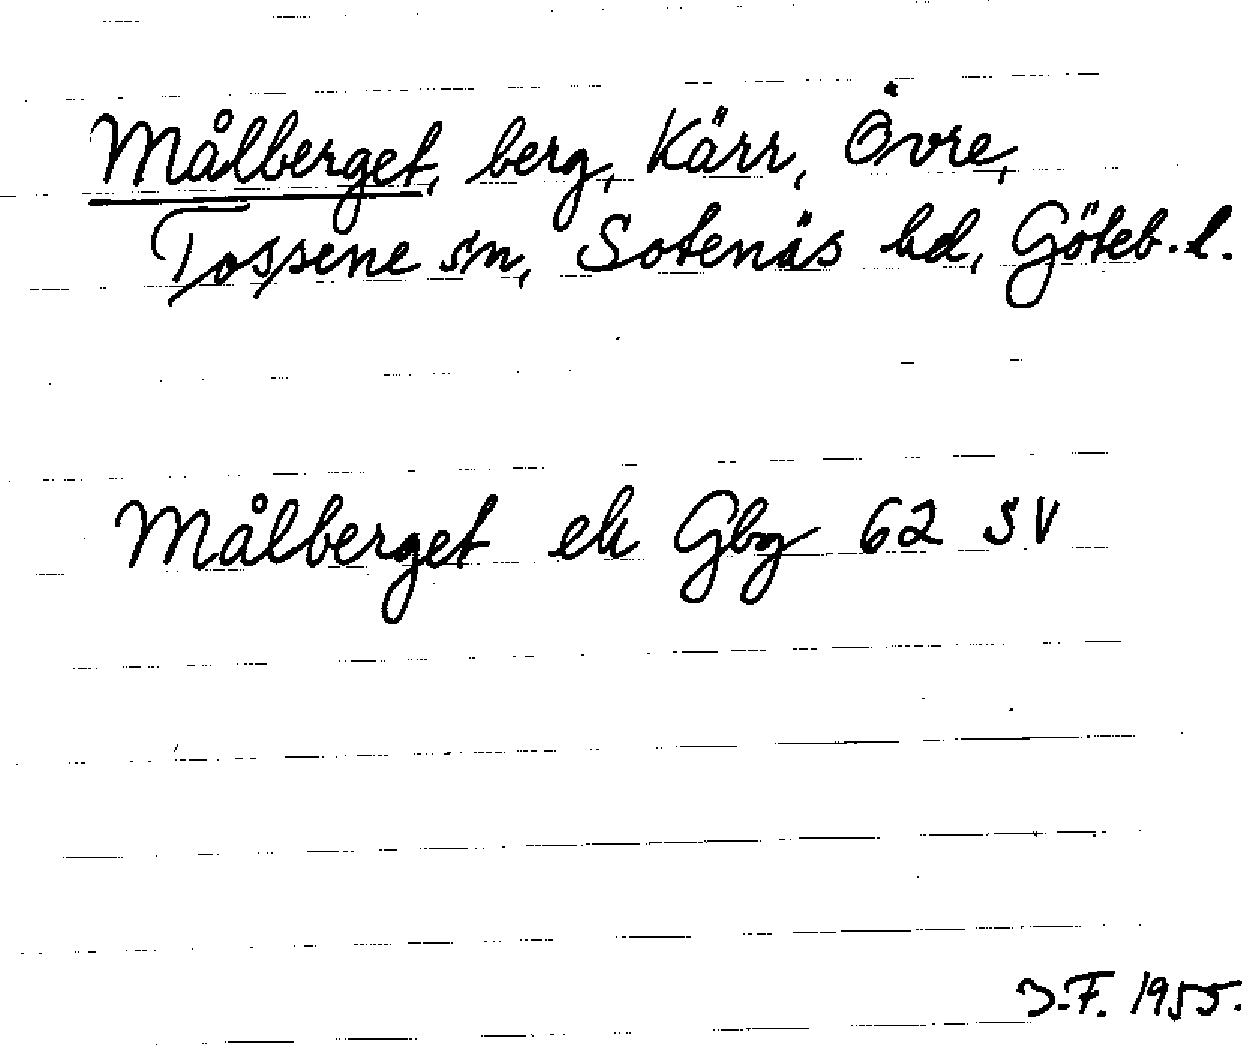 Målberget, berg, Kärr, Övre,
Tossene sn, Sotenäs hd, Göteb. l.
Målberget ek Gbg 62 SV
J.F. 1955.